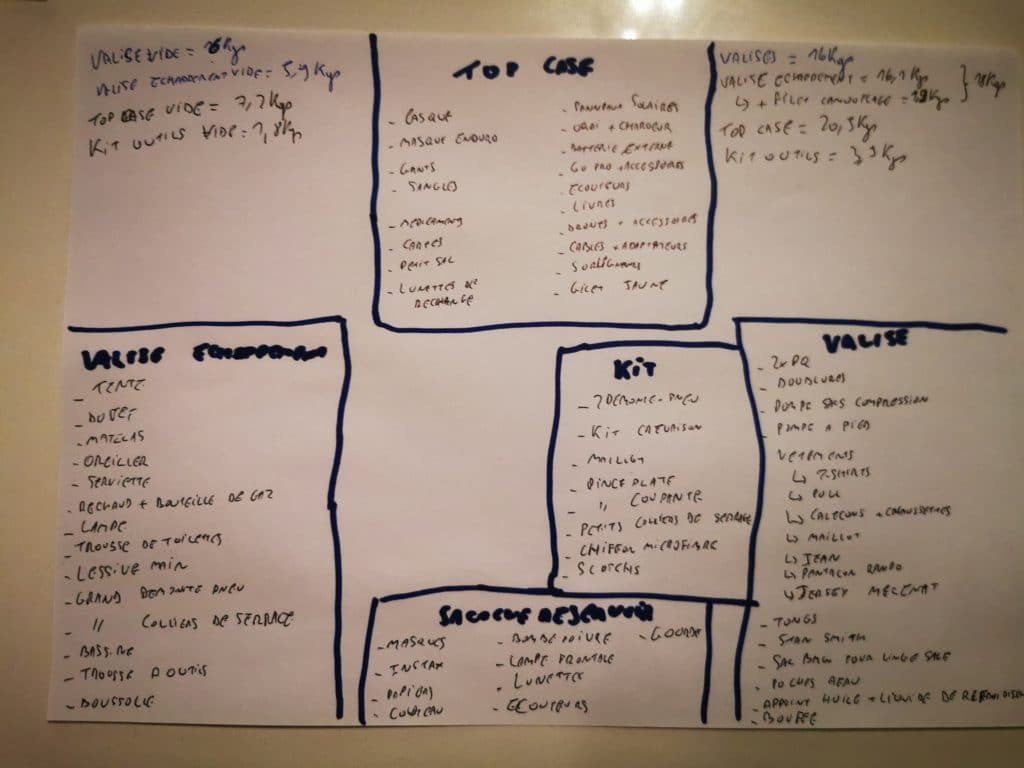 VALISE VIDE = 6Kgs
VALISE ECHAPPEMENT VIDE = 5,9 Kgs
TOP CASE VIDE = 7,2Kgs
KIT OUTILS VIDE = 1,8Kgs
TOP CASE
- CASQUE
- MASQUE ENDURO
- GANTS
- SANGLES
- MEDICAMENTS
- CARTES
- PETIT SAC
- LUNETTES DE
RECHANGE
- PANNEAUX SOLAIRES
- ORDI + CHARGEUR
- BATTERIE EXTERNE
- GO PRO + ACCESSOIRES
- ECOUTEURS
- LIVRES
- DRONES + ACCESSOIRES
- CABLES + ADAPTATEURS
- GILET JAUNE
VALISES = 16Kgs
VALISE ECHAPPEMENT = 16,1Kgs
↳ + FILET CAMOUFLAGE =
} 18Kgs
TOP CASE = 20,5Kgs
KIT OUTILS = 3,9Kgs
VALISE ECHAPPEMENT
- TENTE
- DUVET
- MATELAS
- OREILLER
- SERVIETTE
- RECHAUD + BOUTEILLE DE GAZ
- LAMPE
- TROUSSE DE TOILETTES
- LESSIVE MAIN
- GRAND DEMONTE PNEU
- // COLLIERS DE SERRAGE
- BASSINE
- TROUSSE A OUTILS
- BOUSSOLE
KIT
- 2 DEMONTE-PNEU
- KIT CREVAISON
- MAILLET
- PINCE PLATE
- // COUPANTE
- PETITS COLLIERS DE SERRAGE
- CHIFFON MICROFIBRE
- SCOTCHS
VALISE
- 2x PQ
- DOUBLURES
- POMPE SACS COMPRESSION
- POMPE A PIED
VETEMENTS
↳ T-SHIRTS
↳ PULL
↳ CALECONS + CHAUSSETTES
↳ MAILLOT
↳ JEAN
↳ PANTALON RANDO
↳ JERSEY MECENAT
- TONGS
- STAN SMITH
- SAC BACK POUR LINGE SALE
- POCHES A EAU
- APPOINT HUILE + LIQUIDE DE REFROIDISSE
- BOUFFE
SACOCHE RESERVOIR
- MASQUES
- INSTAX
- PAPIERS
- COUTEAU
- BOMBE POIVRE
- LAMPE FRONTALE
- LUNETTES
- ECOUTEURS
- GOURDE